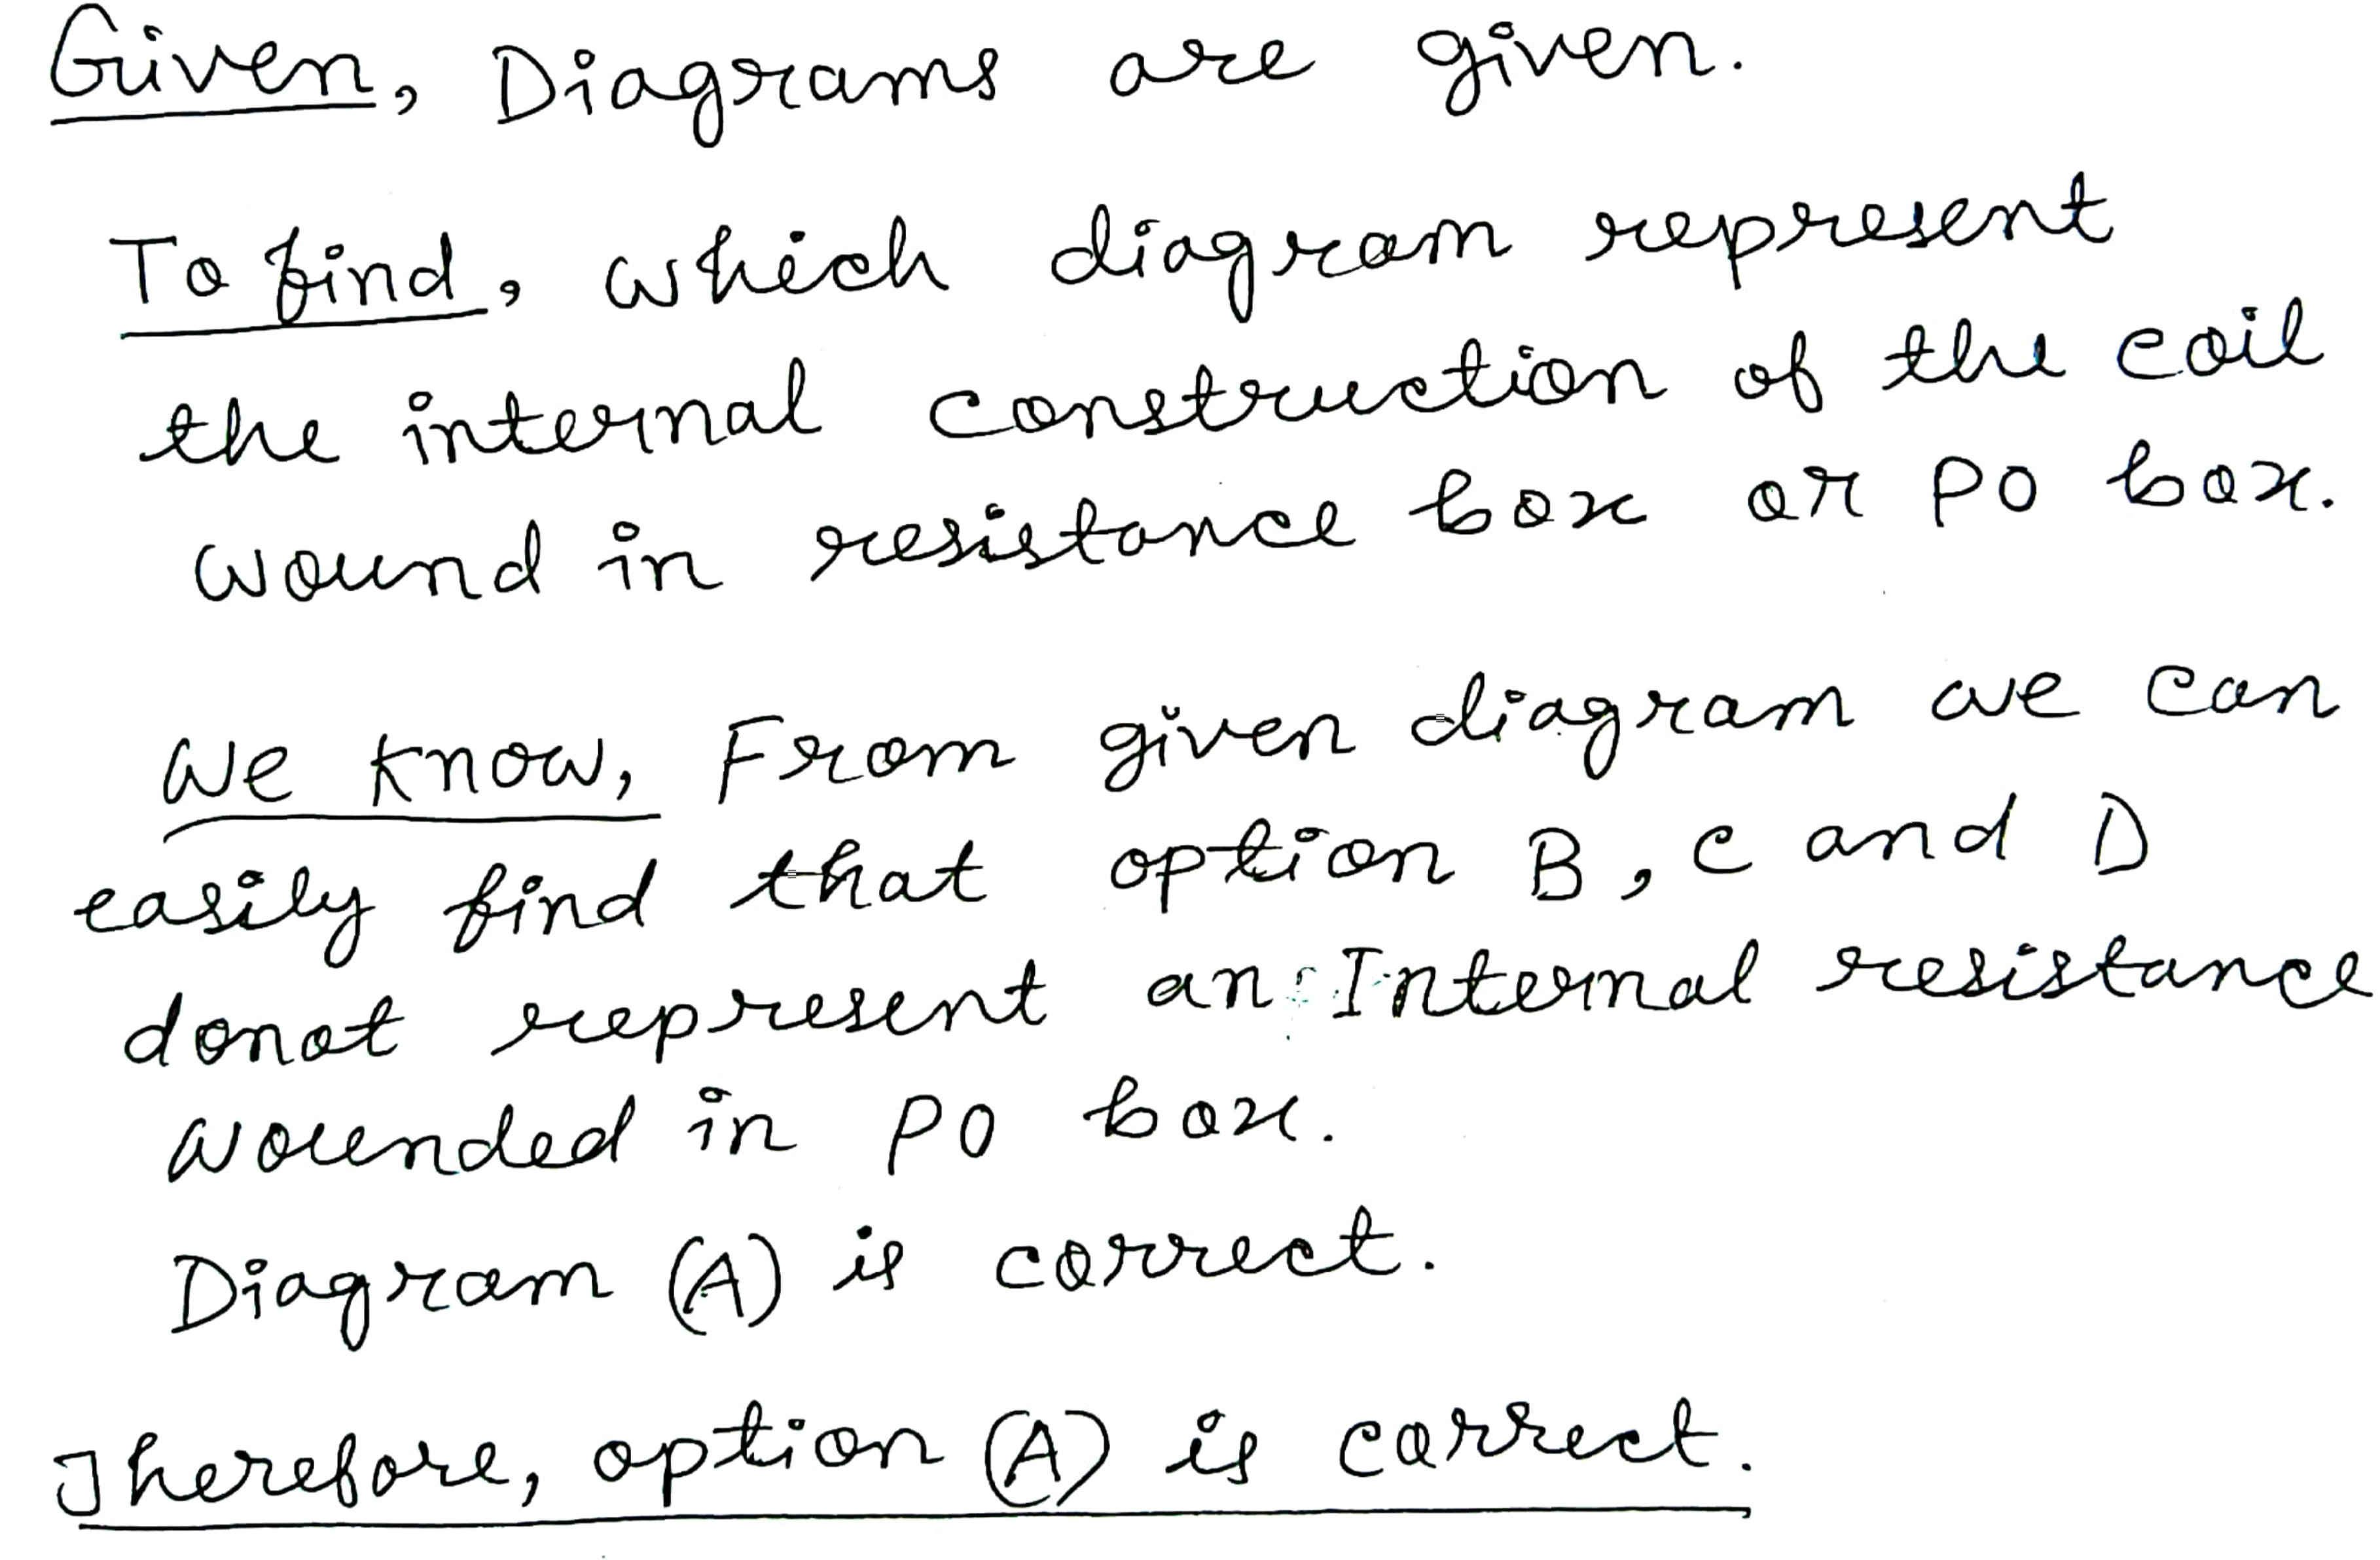 Given, Diagrams are given.
To find, which diagram represent
the internal construction of the coil
wound in resistance box or PO box.
We know, From given diagram we can
easily find that option B, C and D
donot represent an Internal resistance
wounded in PO box.
Diagram (A) is correct.
Therefore, option (A) is correct.